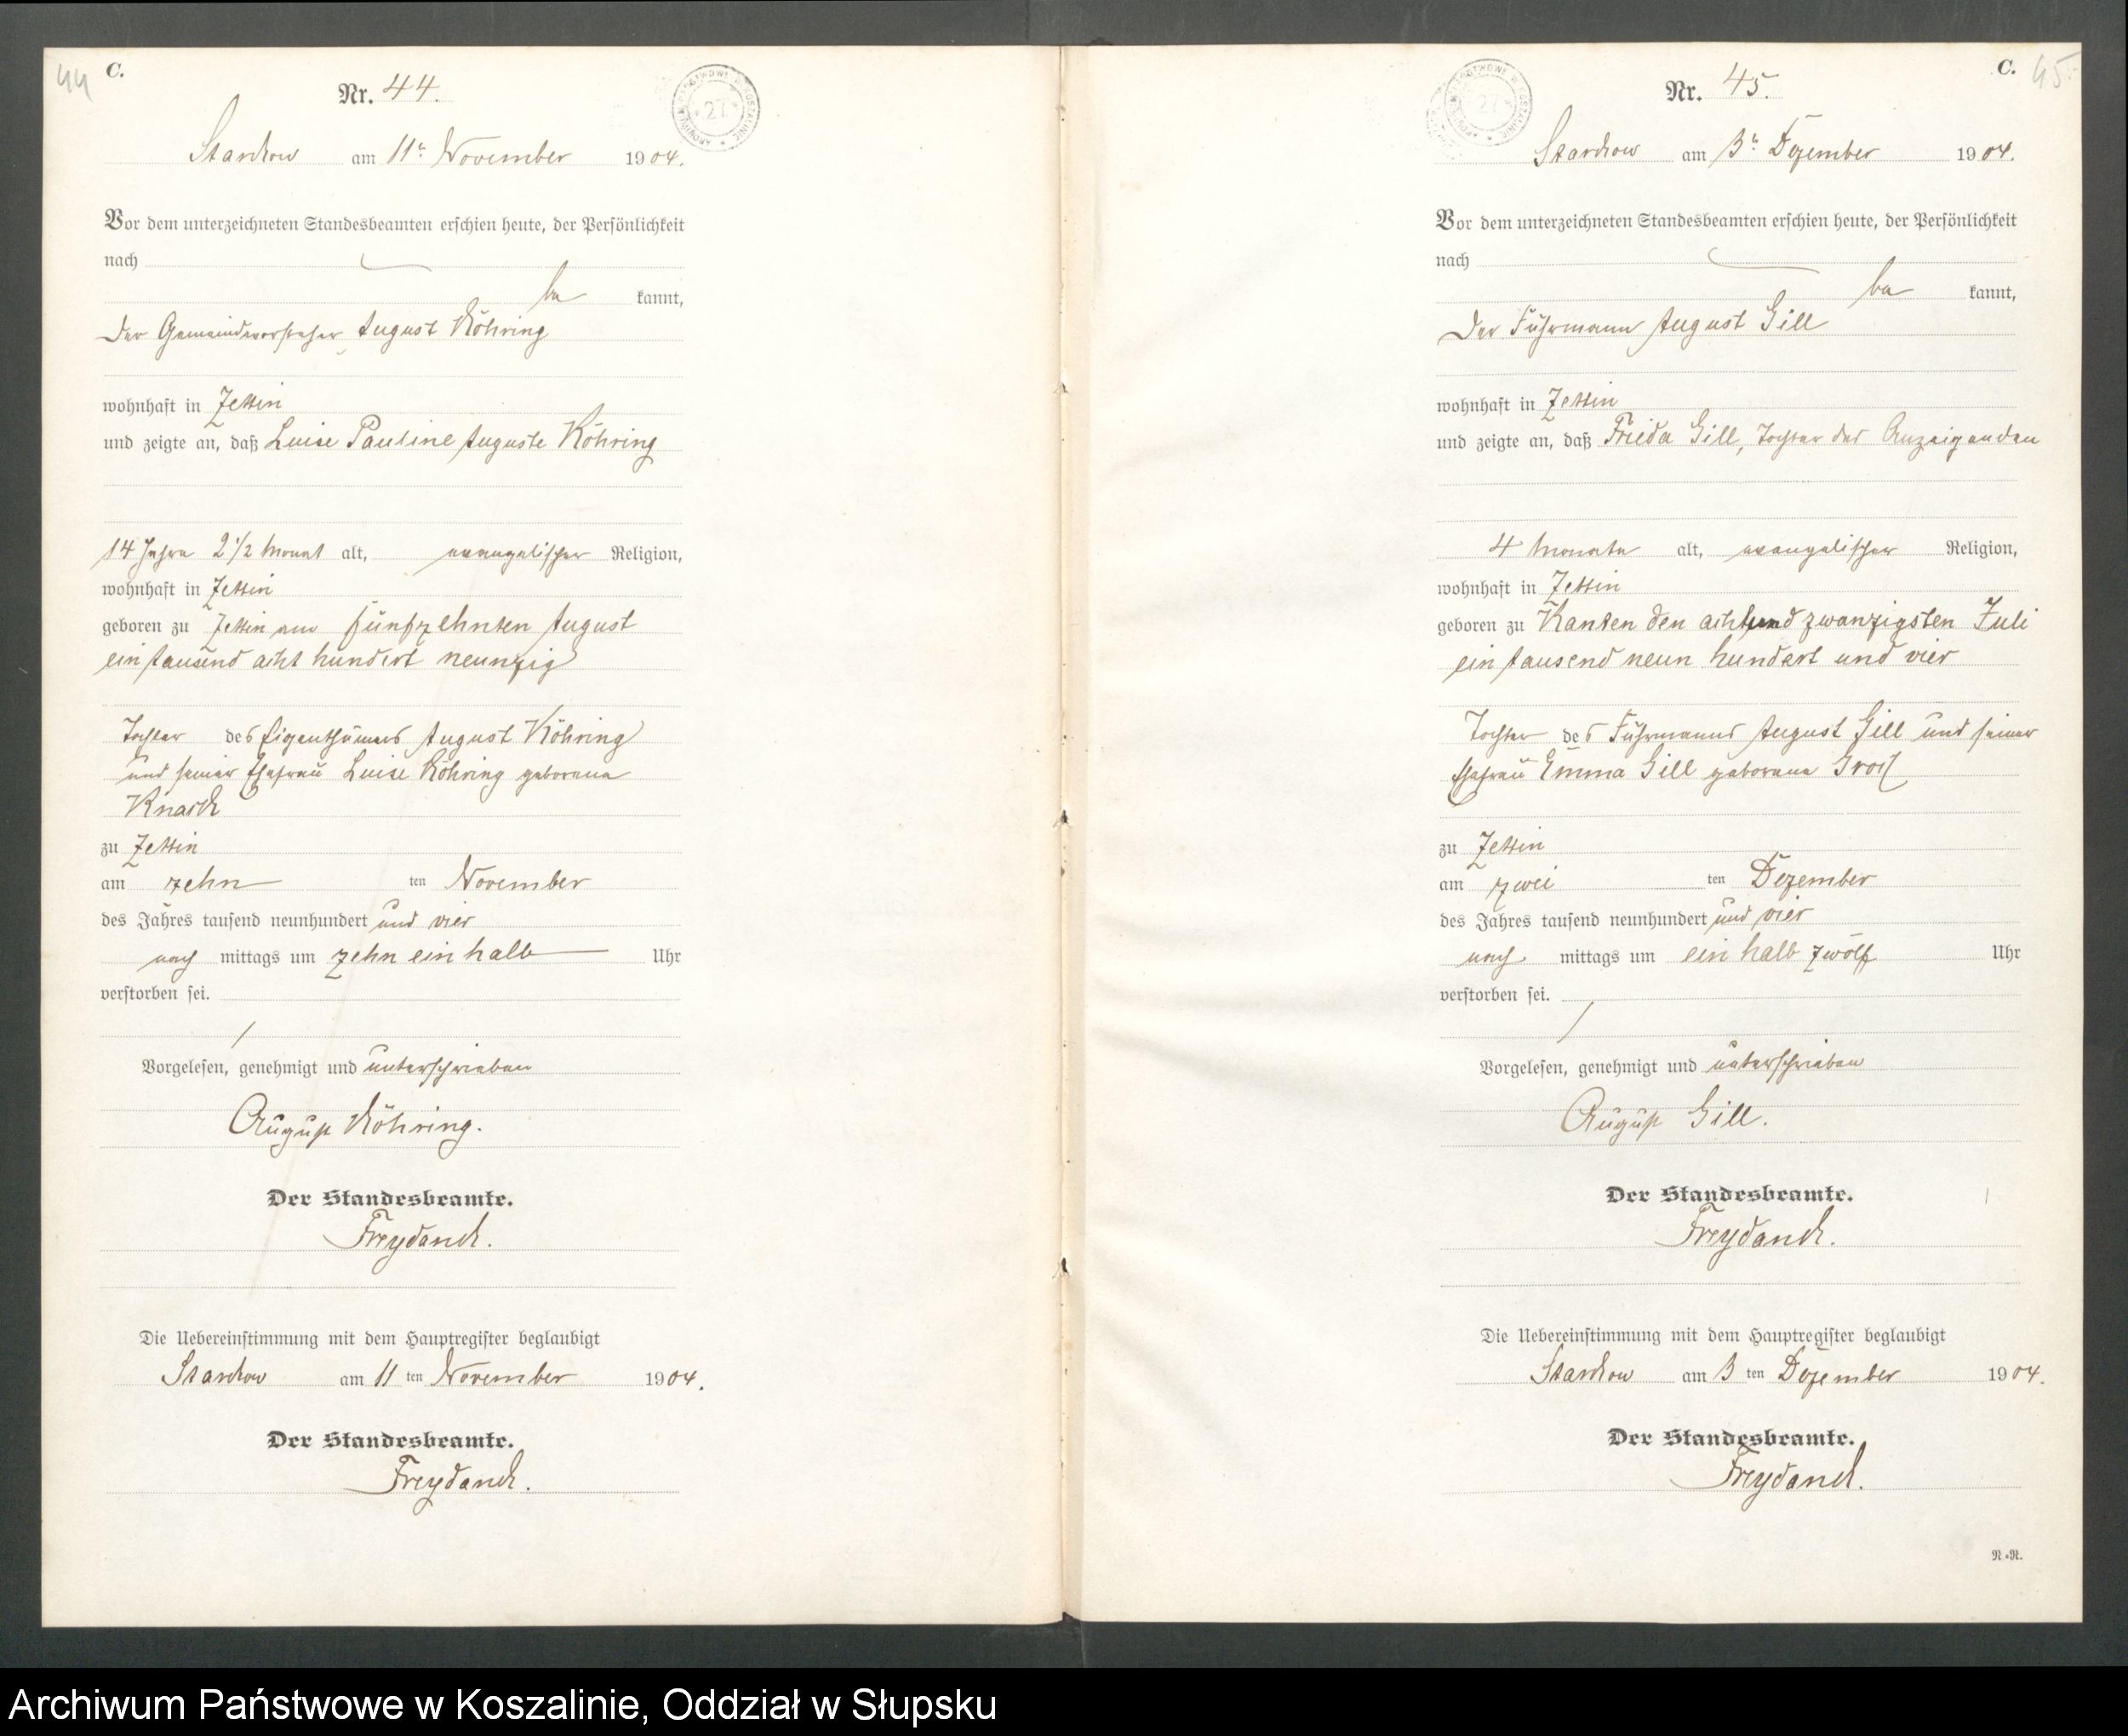 44
C.
Nr. 44.
ARCHIWUM PAŃSTWOWE W KOSZALINIE * 27 *
Starckow am 11ten November 1904.
Vor dem unterzeichneten Standesbeamten erschien heute, der Persönlichkeit
nach
be kannt,
der Gemeindevorsteher August Köhring
wohnhaft in Zettin
und zeigte an, daß Luise Pauline Auguste Köhring
14 Jahre 2 1/2 Monat alt, evangelischer Religion,
wohnhaft in Zettin
geboren zu Zettin am fünfzehnten August
ein tausend acht hundert neunzig
Tochter des Eigenthümers August Köhring
und seiner Ehefrau Luise Köhring geborene
Knack
zu Zettin
am zehn ten November
des Jahres tausend neunhundert und vier
nach mittags um zehn ein halb Uhr
verstorben sei.
Vorgelesen, genehmigt und unterschrieben
August Köhring.
Der Standesbeamte.
Freydanck.
Die Uebereinstimmung mit dem Hauptregister beglaubigt
Starckow am 11 ten November 1904.
Der Standesbeamte.
Freydanck.
C.
45
Nr. 45.
ARCHIWUM PAŃSTWOWE W KOSZALINIE * 27 *
Starckow am 3ten Dezember 1904.
Vor dem unterzeichneten Standesbeamten erschien heute, der Persönlichkeit
nach
be kannt,
der Fuhrmann August Gill
wohnhaft in Zettin
und zeigte an, daß Frieda Gill, Tochter des Anzeigenden
4 Monate alt, evangelischer Religion,
wohnhaft in Zettin
geboren zu Kanten den achtundzwanzigsten Juli
ein tausend neun hundert und vier
Tochter des Fuhrmanns August Gill und seiner
Ehefrau Emma Gill geborene Groß
zu Zettin
am zwei ten Dezember
des Jahres tausend neunhundert und vier
nach mittags um ein halb zwölf Uhr
verstorben sei.
Vorgelesen, genehmigt und unterschrieben
August Gill.
Der Standesbeamte.
Freydanck.
Die Uebereinstimmung mit dem Hauptregister beglaubigt
Starckow am 3 ten Dezember 1904.
Der Standesbeamte.
Freydanck.
N.=N.
Archiwum Państwowe w Koszalinie, Oddział w Słupsku